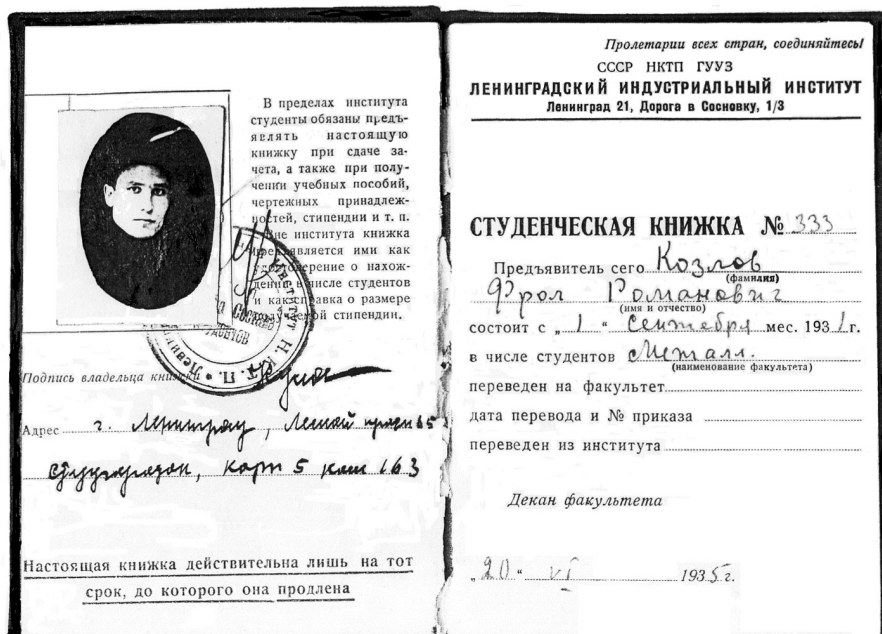 В пределах института
студенты обязаны предъ-
являть настоящую
книжку при сдаче за-
чета, а также при полу-
чении учебных пособий,
чертежных принадлеж-
ностей, стипендии и т. п.
Вне института книжка
предъявляется ими как
удостоверение о нахож-
дении в числе студентов
и как справка о размере
получаемой стипендии.
Подпись владельца книжки
Адрес г. Ленинград, Лесной 65
Студгородок, корп 5 ком 163
Настоящая книжка действительна лишь на тот
срок, до которого она продлена
Пролетарии всех стран, соединяйтесь!
СССР НКТП ГУУЗ
ЛЕНИНГРАДСКИЙ ИНДУСТРИАЛЬНЫЙ ИНСТИТУТ
Ленинград 21, Дорога в Сосновку, 1/3
СТУДЕНЧЕСКАЯ КНИЖКА № 333
Предъявитель сего Козлов
(фамилия)
Фрол Романович
(имя и отчество)
состоит с „ 1 “ сентября мес. 1931 г.
в числе студентов Металл.
(наименование факультета)
переведен на факультет
дата перевода и № приказа
переведен из института
Декан факультета
„20“ VI 1935 г.